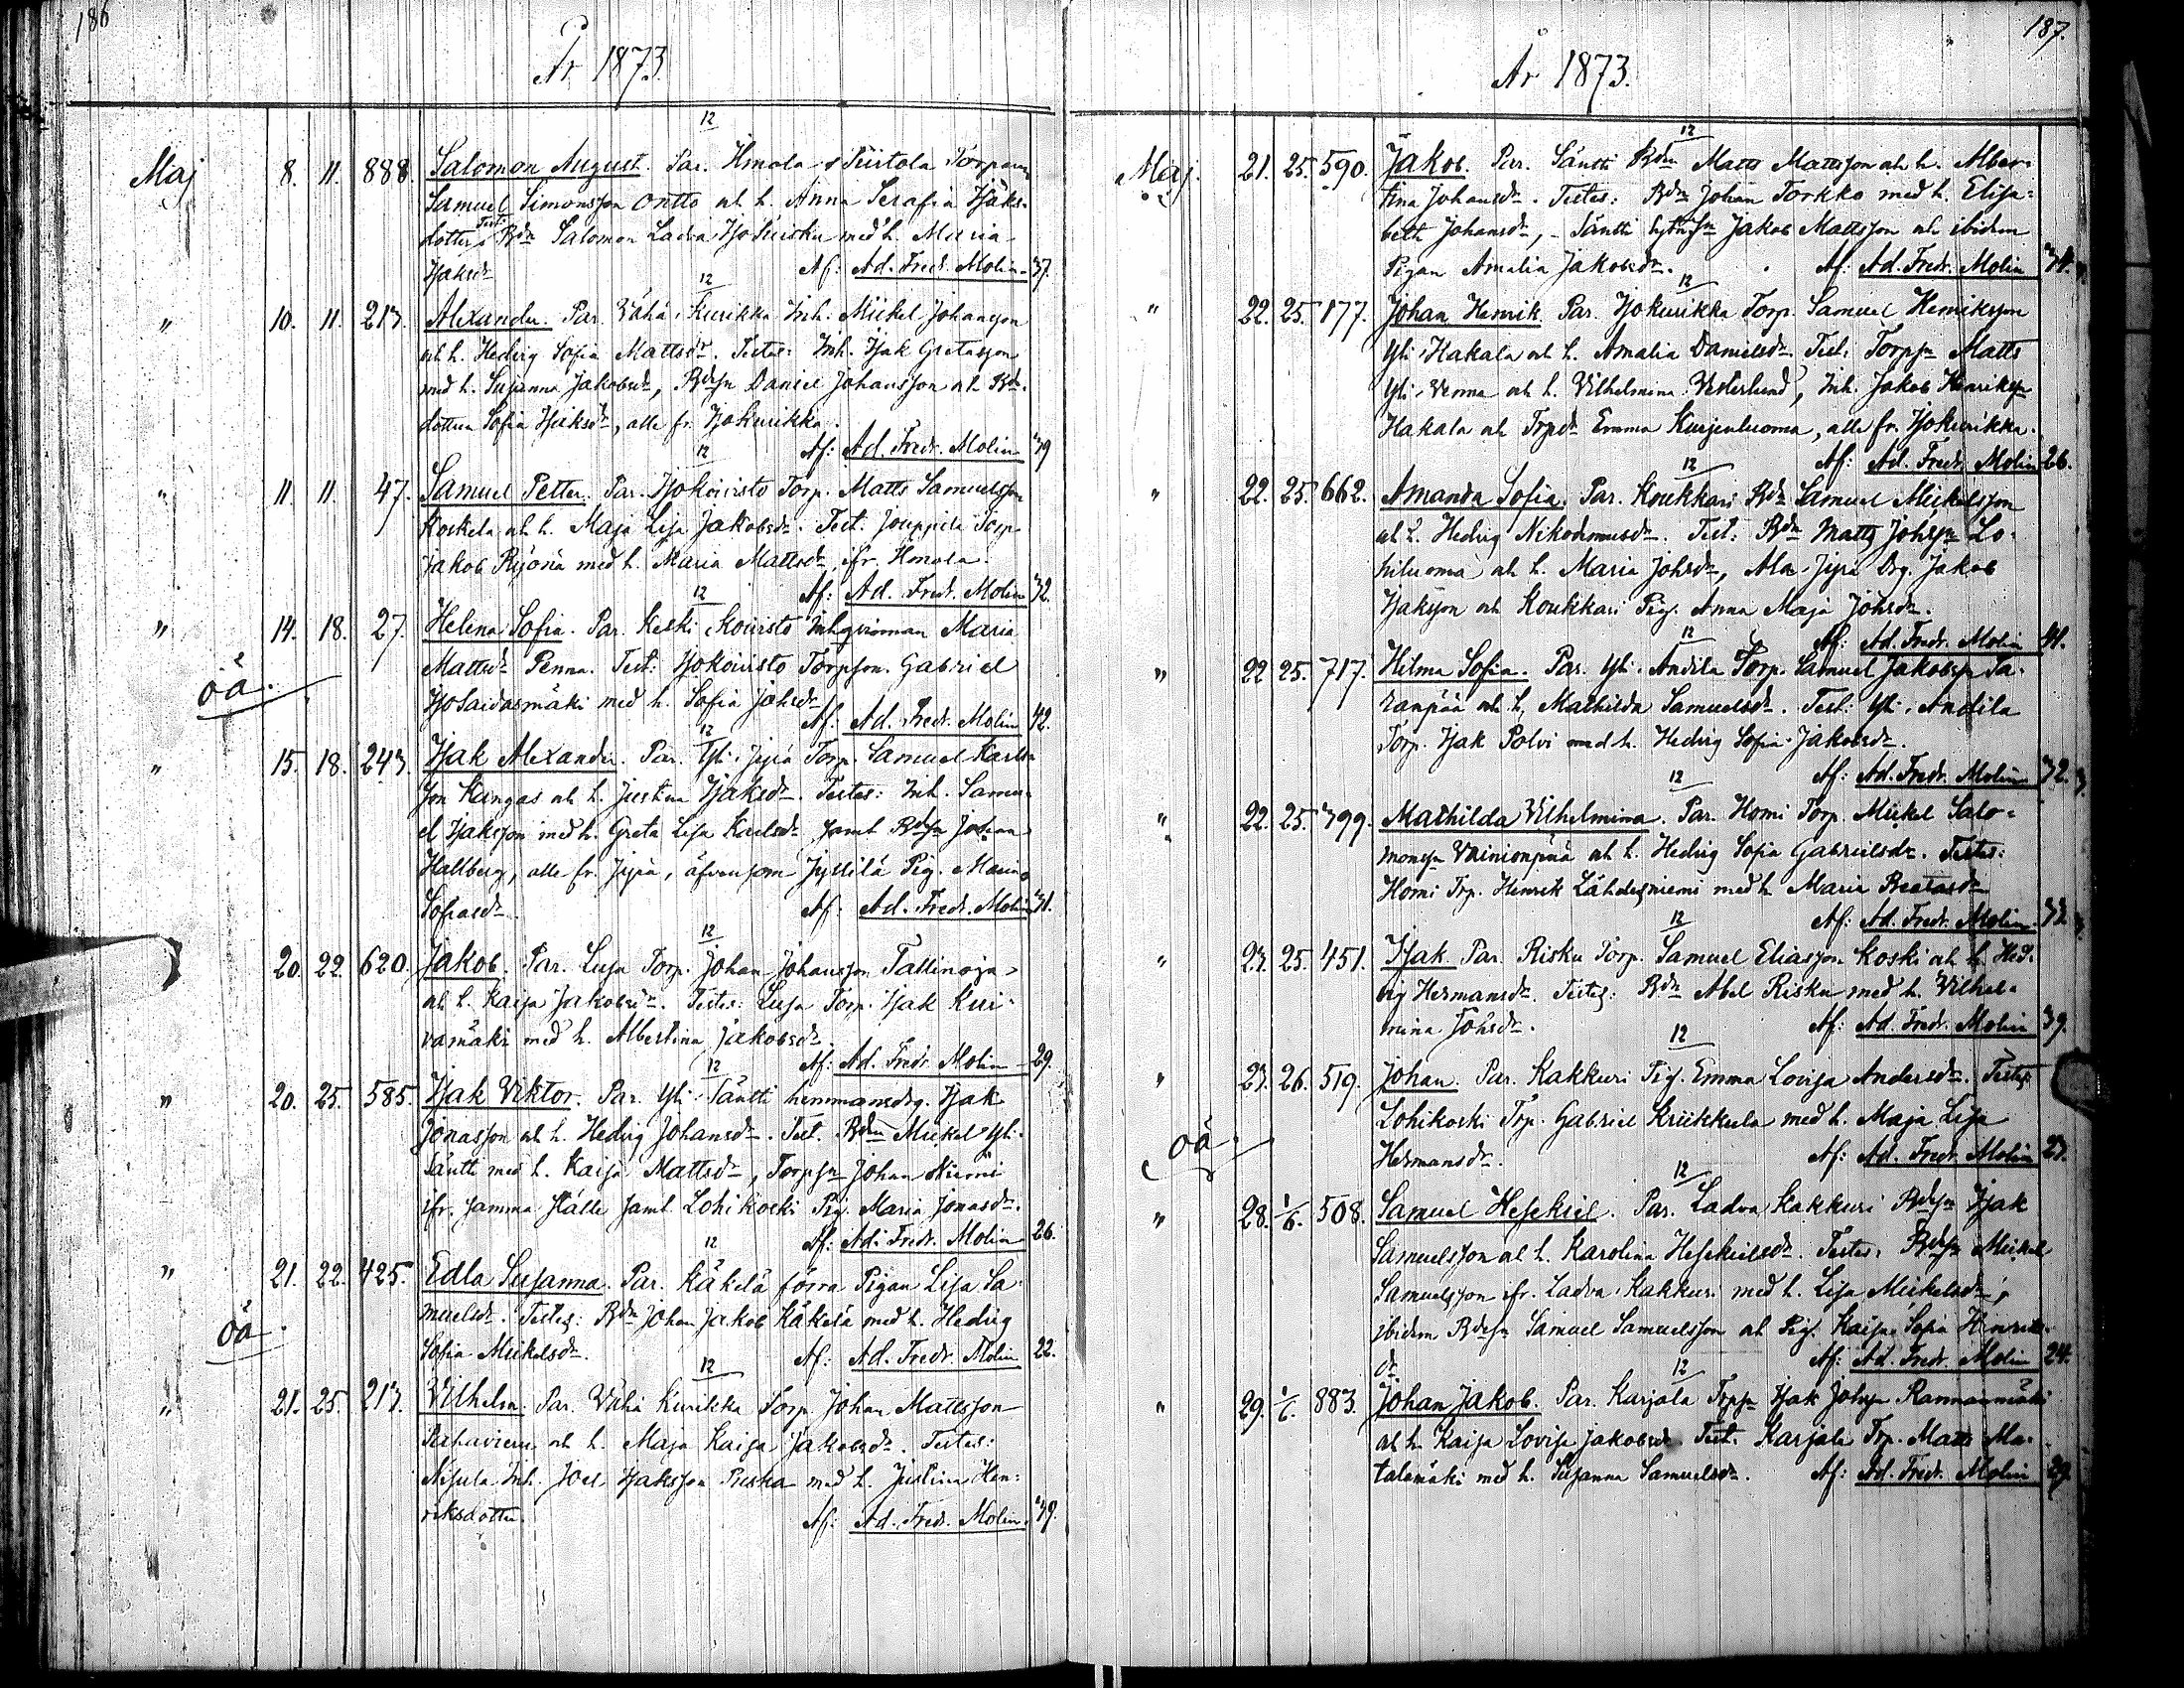 186
År 1873.
12
Maj 8. 11. 888. Salomon August. Par. Ilmola Torpare
Samuel Simonsson Ontto och h. Anna Serafia Isaks-
dotter, Test: Bdn Salomon Ladva med h. Maria
Isaksdr Af: Ad. Fredr. Molin 37.
12
" 10. 11. 213. Alexander. Par. Vähä Kurikka Inh. Mickel Johansson
och h. Hedvig Sofia Mattsdr. Testes: Inh. Isak Gretasson
med h. Susanna Jakobsdr, Bdesn Daniel Johansson och Bde-
dottern Sofia Isaksdr, alla fr. Isokurikka.
Af: Ad. Fredr. Molin 39
12
" 11. 11. 47. Samuel Petter. Par. Isokoivisto Torp. Matts Samuelsson
Koskela och h. Maja Lisa Jakobsdr. Test. Jouppila Torp.
Jakob med h. Maria Mattsdr, ifr. Ilmola.
Af: Ad. Fredr. Molin 32.
12
" 14. 18. 27. Helena Sofia. Par. Keski Koivisto Inhqvinnan Maria
Mattsdr Penna. Test: Isokoivisto Torpson. Gabriel
oä. med h. Sofia Johsdr
Af: Ad. Fredr. Molin 42.
12
" 15. 18. 243. Isak Alexander. Par. Yli Jyrä Torp. Samuel Karls-
son Kangas och h. Justina Isaksdr. Testes: Inh. Samu-
el Isaksson med h. Greta Lisa Karlsdr samt Bdesn Johan
Hallberg, alla fr. Jyrä, äfvensom Jyllilä Pig. Maria
Sofiasdr. Af. Ad. Fredr. Molin 31.
12
20. 22. 620. Jakob. Par. Luga Torp. Johan Johansson Tallinoja
och h. Kaisa Jakobsdr. Testes: Luga Torp. Isak Kui-
vamäki med h. Albertina Jakobsdr.
Af: Ad. Fredr. Molin 29.
12
" 20. 25. 585. Isak Viktor. Par. Yli Säntti hemmansdrg. Isak
Jonasson och h. Hedvig Johansdr. Test. Bdn Mickel Yli-
Säntti med h. Kaisa Mattsdr, Torpsn Johan Niemi
ifr. samma ställe samt Lohikoski Pig. Maria Jonasdr.
Af: Ad. Fredr. Molin 26.
12
" 21. 22. 425. Edla Susanna. Par. Käkelä förra Pigan Lisa Sa-
muelsdr. Testes: Bdn Johan Jakob Käkelä med h. Hedvig
oä. Sofia Mickelsdr. Af: Ad. Fredr. Molin 22.
12
" 21. 25. 213. Vilhelm. Par. Vähä Kurikka Torp. Johan Mattsson
och h. Maja Kaisa Jakobsdr. Testes:
Nisula Inh. Joel Isaksson med h. Justina Hen-
riksdotter. Af: Ad. Fredr. Molin 39.
187.
År 1873.
12
Maj. 21. 25. 590. Jakob. Par. Säntti Bdn Matts Mattsson och h. Alber-
tina Johansdr. Testes: Bdn Johan Torkko med h. Elisa-
beth Johansdr, Säntti Jakob Mattsson och ibidem
Pigan Amalia Jakobsdr. Af: Ad. Fredr. Molin 34.
12
" 22. 25. 177. Johan Henrik Par. Isokurikka Torp. Samuel Henriksson
Yli Hakala och h. Amalia Danielsdr. Test: Torpsn Matts
Yli Venna och h. Vilhelmina Vesterlund, Inh. Jakob Henriksn
Hakala och Trpdr Emma Kurjenluoma, alla fr. Isokurikka.
Af: Ad. Fredr. Molin 26.
12
" 22. 25. 662. Amanda Sofia. Par. Koukkari Bdn Samuel Mickelsson
och h. Hedvig Nikodemusdr. Test: Bdn Matts Johsn Lo-
hiluoma och h. Maria Johsdr, Ala-Jyrä Drg. Jakob
Isaksson och Koukkari Pig. Anna Maja Johsdr.
Af: Ad. Fredr. Molin 41.
12
" 22. 25. 717. Hilma Sofia. Par. Yli-Andila Torp. Samuel Jakobsn Sa-
ranpää och h. Mathilda Samuelsdr. Test: Yli-Andila
Torp. Isak Polvi med h. Hedvig Sofia Jakobsdr.
Af: Ad. Fredr. Molin 32.
12
" 22. 25. 399. Mathilda Vilhelmina. Par. Homi Torp. Mickel Salo-
monsn Vainionpää och h. Hedvig Sofia Gabrielsdr. Testes:
Homi Trp. Henrik Lähdesniemi med h. Maria Beatasdr
Af: Ad. Fredr. Molin 33.
12
" 23. 25. 451. Isak Par. Risku Torp. Samuel Eliasson Koski och h. Hed-
vig Hermansdr. Testes: Bdn Abel Risku med h. Vilhel-
mina Johsdr. Af: Ad. Fredr. Molin 39.
12
" 23. 26. 519. Johan. Par. Kakkuri Pig. Emma Lovisa Andersdr. Testes
Lohikoski Trp. Gabriel Kriikkula med h. Maja Lisa
oä. Hermansdr. Af: Ad. Fredr. Molin 23.
12
" 28. 1/6. 508. Samuel Hesekiel. Par. Ladva Kakkuri Bdesn Isak
Samuelsson och h. Karolina Hesekielsdr. Testes: Bdesn Mickel
Samuelsson ifr. Ladva Kakkuri med h. Lisa Mickelsdr,
ibidem Bdesn Samuel Samuelsson och Pig. Kaisa Sofia Henriks-
dr Af: Ad. Fredr. Molin 24.
12
" 29. 1/6. 883. Johan Jakob. Par. Karjala Trpsn Isak Johsn Rannanmäki
och h. Kaisa Lovisa Jakobsdr. Test. Karjala Trp. Matts Ma-
talamäki med h. Susanna Samuelsdr. Af: Ad. Fredr. Molin 29.